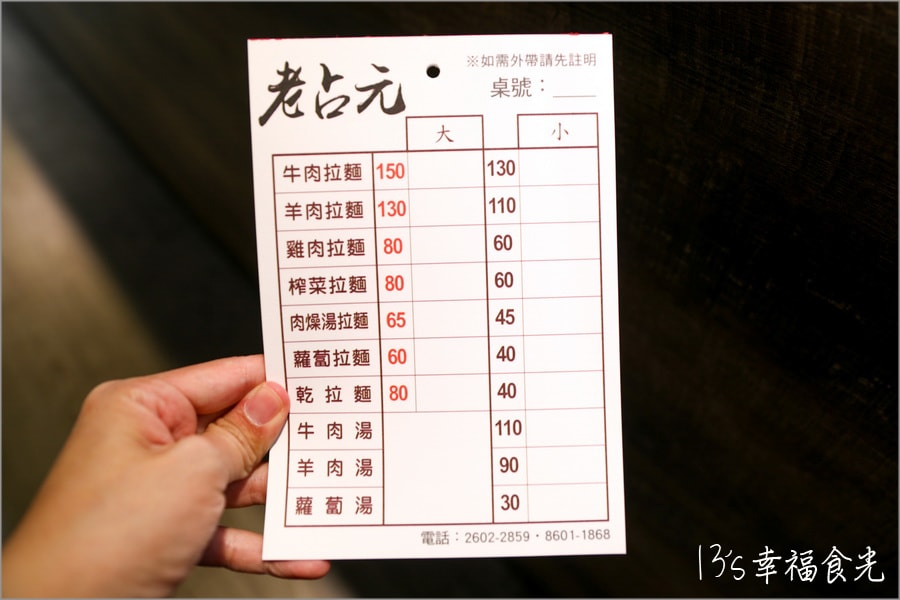 老占元
※如需外帶請先註明
桌號：____
大 小
牛肉拉麵 150 130
羊肉拉麵 130 110
雞肉拉麵 80 60
榨菜拉麵 80 60
肉燥湯拉麵 65 45
蘿蔔拉麵 60 40
乾拉麵 80 40
牛肉湯 110
羊肉湯 90
蘿蔔湯 30
電話：2602-2859・8601-1868
13's幸福食光